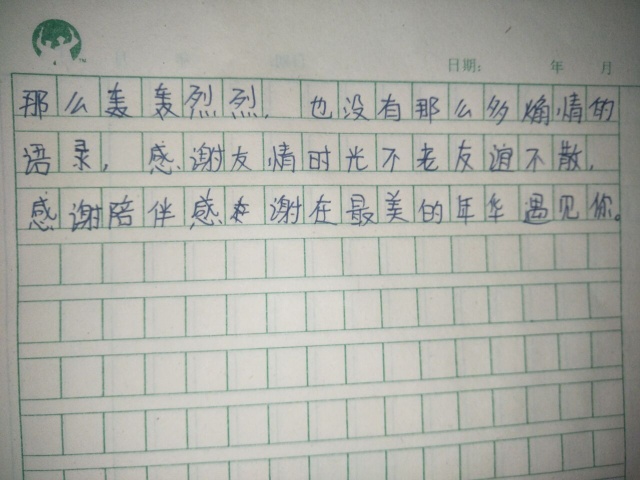 日期: 年 月
那么轰轰烈烈，也没有那么多煽情的
语录，感谢友情时光不老友谊不散，
感谢陪伴感谢在最美的年华遇见你。